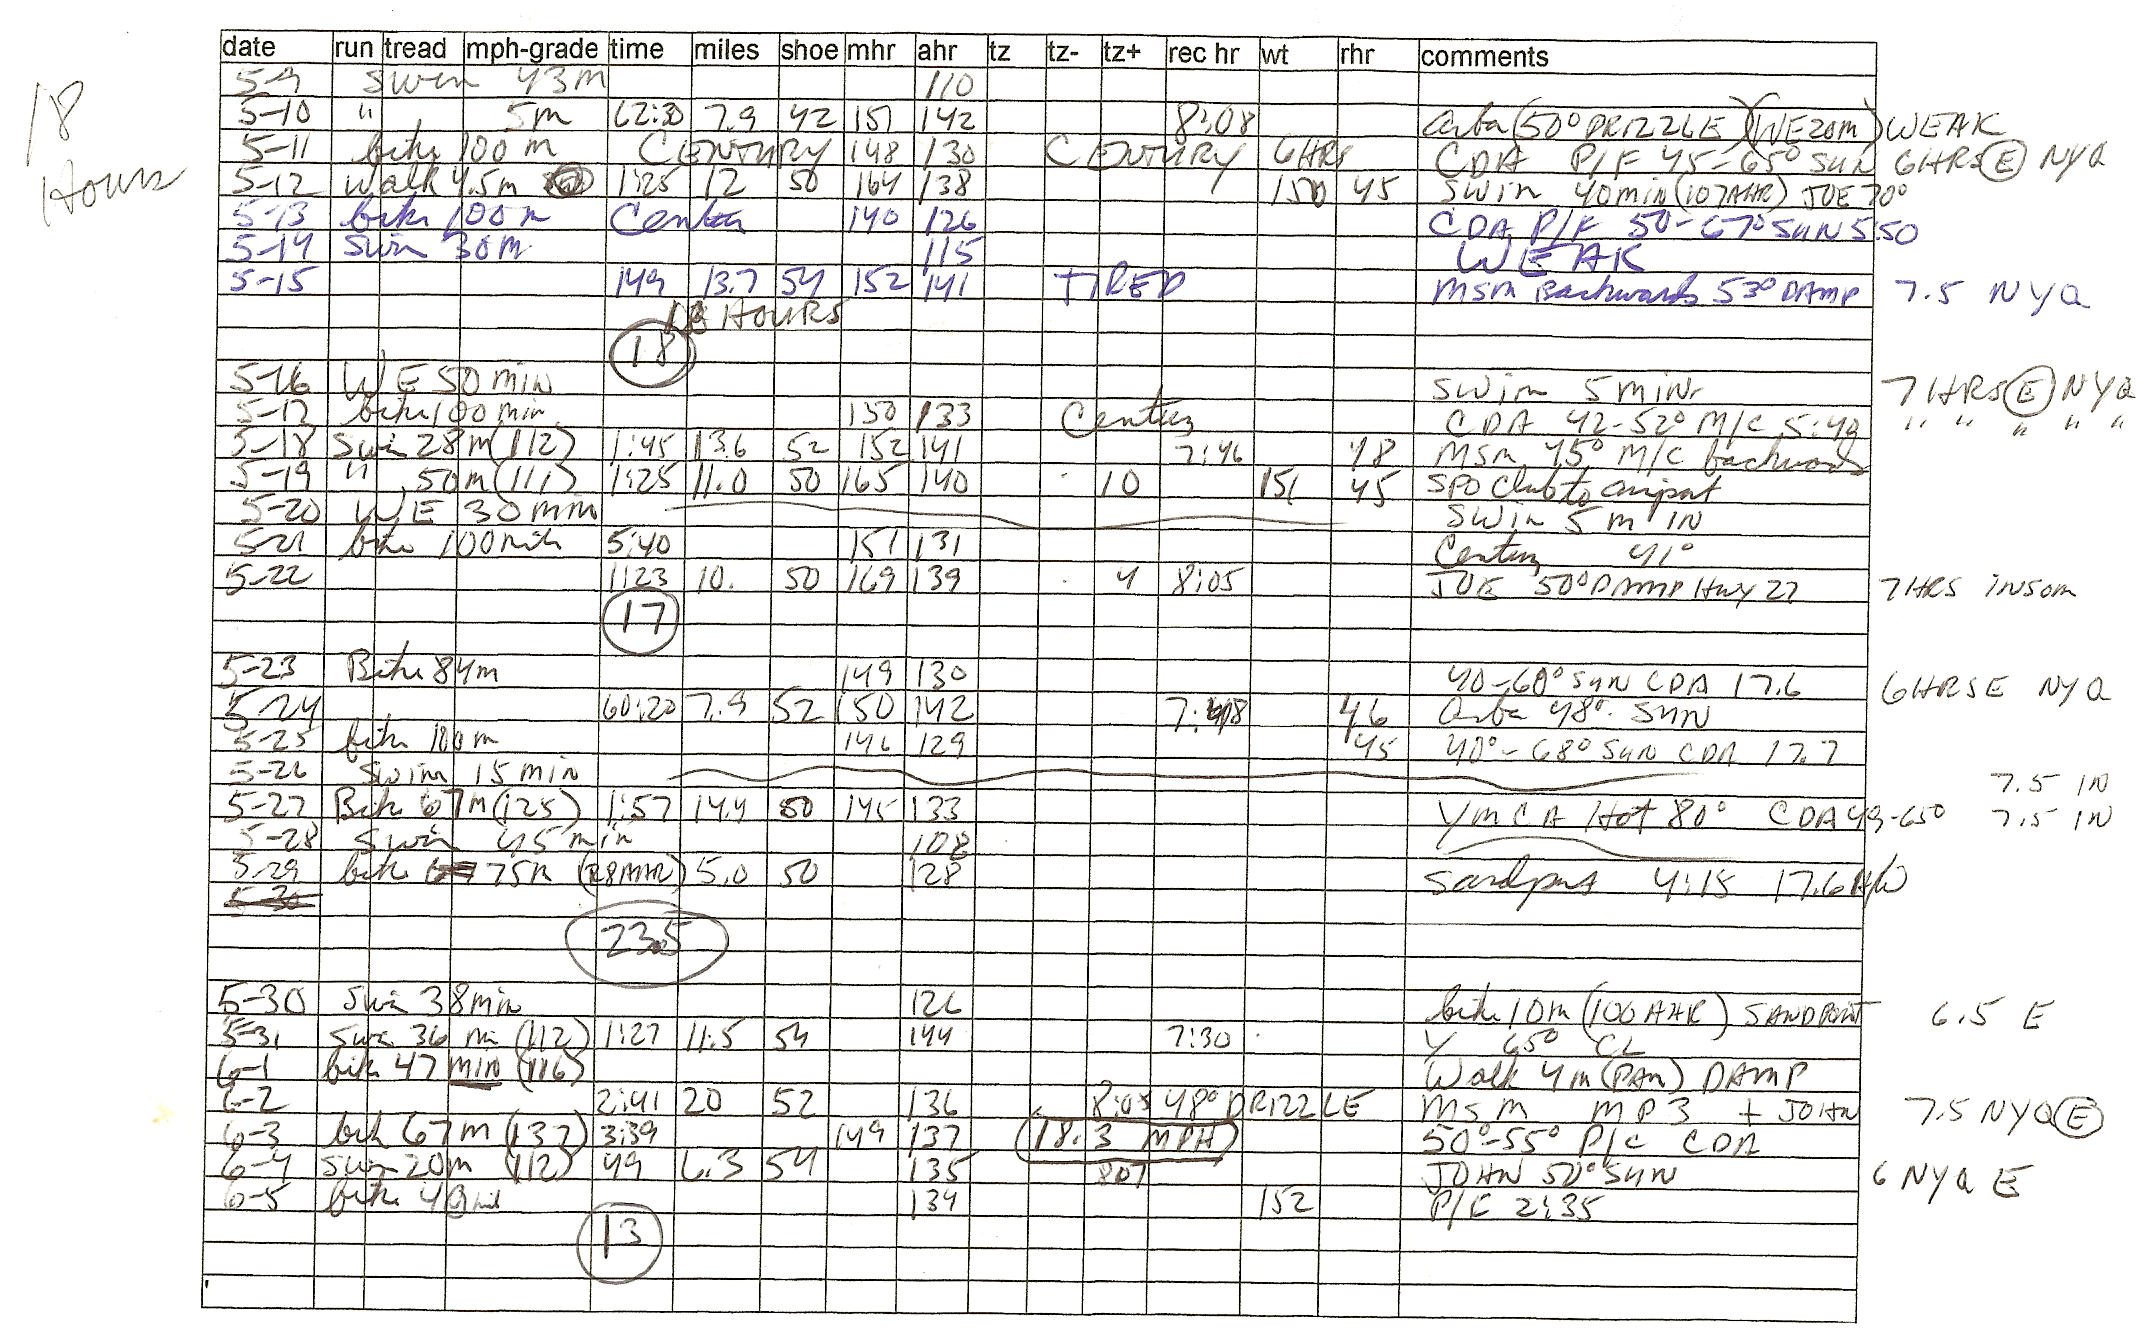 date run tread mph-grade time miles shoe mhr ahr tz tz- tz+ rec hr wt rhr comments
5-9 swim 43m 110
18 Hours
5-10 " 5m 62:30 7.9 42 151 142 8:08 (50° DRIZZLE) (WE 20m) WEAK
5-11 bike 100 m CENTURY 148 130 CENTURY 6HRS CDA P/F 45-65° SUN 6HRS E NYQ
5-12 walk 4.5m 1:25 12 50 164 138 150 45 swim 40min (107AHR) JOE 70°
5-13 bike 100 m 140 126 CDA P/F 50-67° SUN 5:50
5-14 swim 30m. 115 WEAK
5-15 149 13.7 54 152 141 TIRED MSM Backwards 53° DAMP 7.5 NYQ
18 HOURS
18
5-16 WE 50 min swim 5 min. 7HRS E NYQ
5-17 bike 100 min 150 133 Century CDA 42-52° M/C 5:49 " " " " "
5-18 swim 28m (112) 1:45 13.6 52 152 141 7:46 48 MSM 45° M/C backwards
5-19 " 50m (111) 1:25 11.0 50 165 140 10 151 45 SPO Club to airport
5-20 WE 30 min swim 5 min
5-21 bike 100 mile 5:40 151 131 Century 41°
5-22 1:23 10. 50 169 139 4 8:05 JOE 50° DAMP Hwy 27 7HRS insom
17
5-23 Bike 84m 149 130 40-60° sun CDA 17.6 6HRS E NYQ
5-24 60:20 7.9 52 150 142 46 48° SUN
5-25 bike 100 m 146 129 45 40°-68° Sun CDA 17.7
5-26 swim 15 min 7.5 IN
5-27 Bike 67m (125) 1:57 14.4 50 145 133 YMCA Hot 80° CDA 49-65° 7.5 IN
5-28 swim 45 min 108
5-29 bike 75m 5.0 50 128 4:15 17.6
5-30
23.5
5-30 swim 38min 126 bike 10m (100 AHR) SANDPOINT 6.5 E
5-31 swim 36 m (112) 1:27 11.5 54 144 7:30 Y 65° CL
6-1 bike 47 min (116) Walk 4m (PAM) DAMP
6-2 2:41 20 52 136 8:05 48° DRIZZLE MSM MP3 + JOHN 7.5 NYQ E
6-3 bike 67m (137) 3:39 149 137 18.3 MPH 50°-55° P/C CDA
6-4 swim 20m (112) 49 6.3 54 135 807 JOHN 50° SUN 6 NYQ E
6-5 bike 134 152 2:35
13